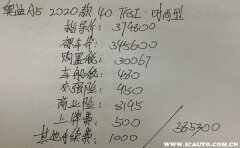 奥迪A5 2020款 40 TFSI 时尚型
指导价: 374800
裸车价: 345600
购置税: 30067
车船税: 480
交强险: 950
商业险: 8195
上牌费: 500
其他手续费: 1000
385300
爱卡汽车
WWW.XCAR.COM.CN